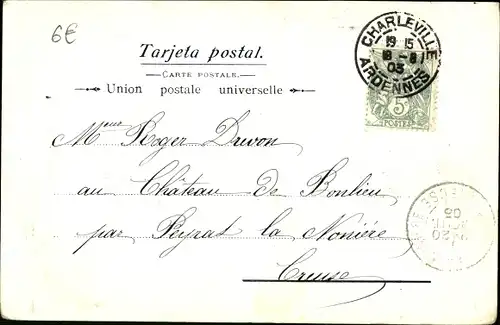 6€
Tarjeta postal.
CARTE POSTALE.
Union postale universelle
CHARLEVILLE
19 15
8 -8
03
ARDENNES
5
POSTES
Mr Roger Duvon
au Château de Bonlieu
par Peyrat la Nonière
Creuse